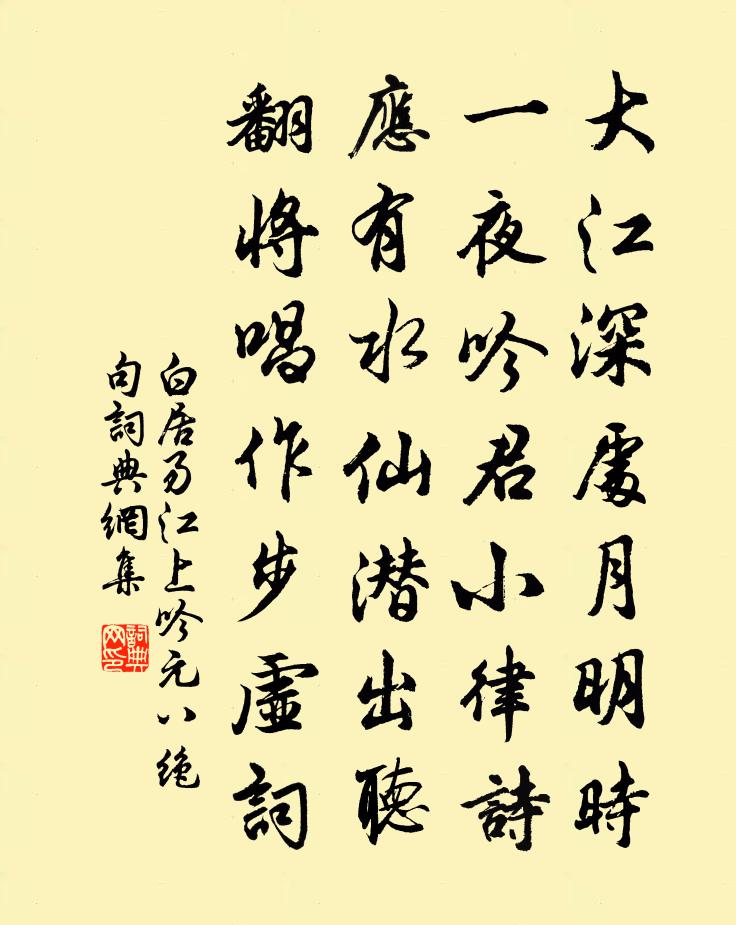 大江深處月明時
一夜吟君小律詩
應有水仙潜出聽
翻將唱作步虛詞
白居易江上吟元八絶
句詞典網集
詞典
网印